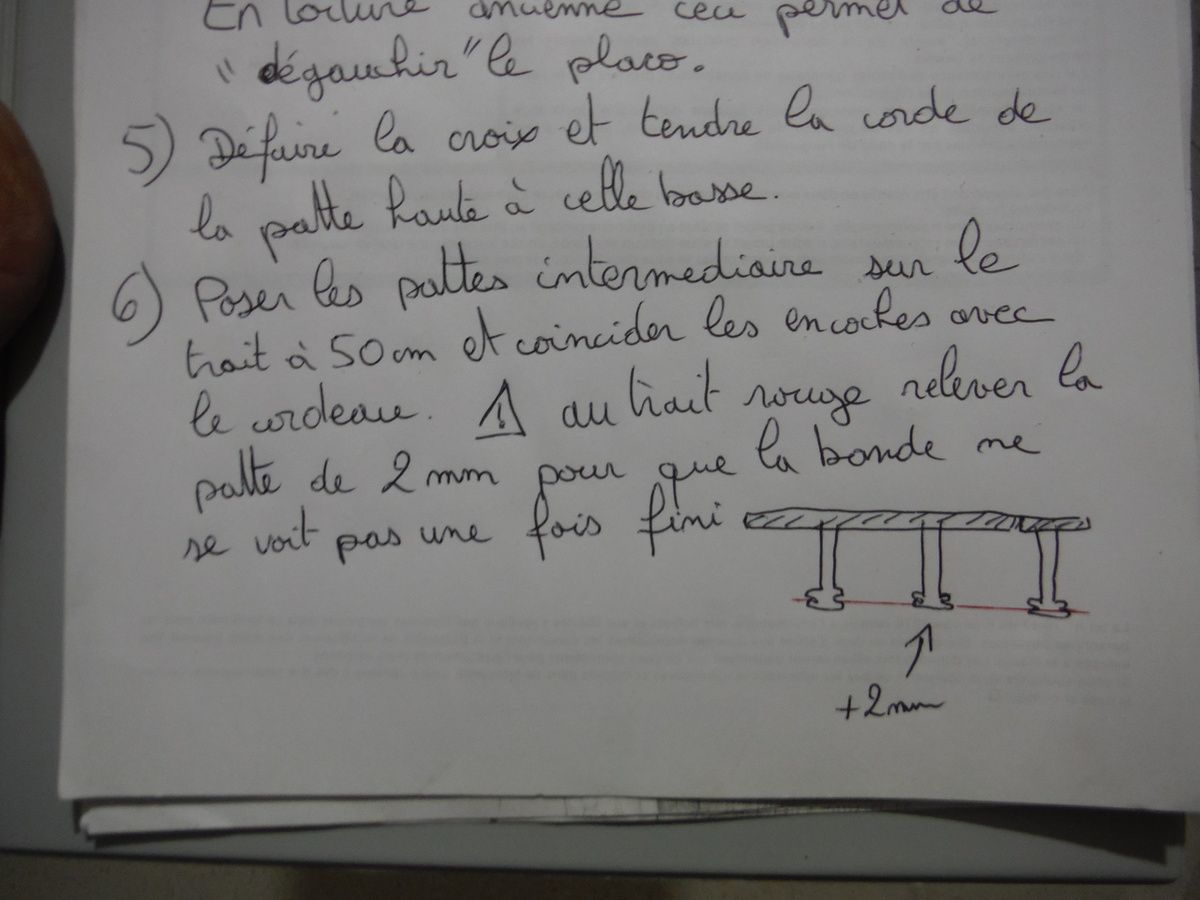 En toiture ancienne ceci permet de
"dégauchir" le placo.
5) Défaire la croix et tendre la corde de
la patte haute à celle basse.
6) Poser les pattes intermediaire sur le
trait à 50 cm et coincider les encoches avec
le cordeau. ⚠ au trait rouge relever la
patte de 2 mm pour que la bande ne
se voit pas une fois fini
+2mm